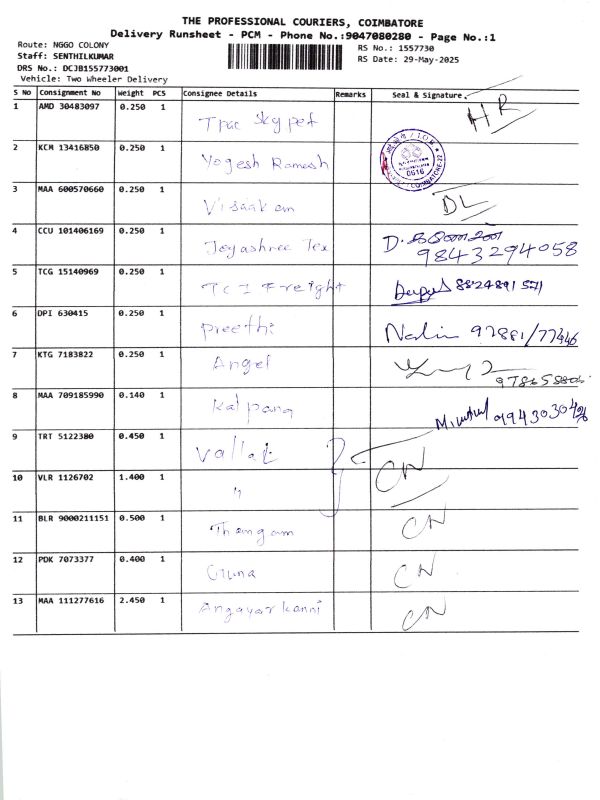 THE PROFESSIONAL COURIERS, COIMBATORE
Delivery Runsheet - PCM - Phone No.:9047080280 - Page No.:1
Route: NGGO COLONY
Staff: SENTHILKUMAR
DRS No.: DCJB155773001
Vehicle: Two Wheeler Delivery
RS No.: 1557730
RS Date: 29-May-2025
S No Consignment No Weight PCS Consignee Details Remarks Seal & Signature.
1 AMD 30483097 0.250 1 HR
2 KCM 13416850 0.250 1 Yogesh Ramesh COIMBATORE-22 0616
3 MAA 600570660 0.250 1 DL
4 CCU 101406169 0.250 1 Jeyashree Tex D. 9843294058
5 TCG 15140969 0.250 1 TCI Freight 8824891571
6 DPI 630415 0.250 1 Preethi
7 KTG 7183822 0.250 1 Angel
8 MAA 709185990 0.140 1 Kalpana
9 TRT 5122380 0.450 1 CN
10 VLR 1126702 1.400 1 "
11 BLR 9000211151 0.500 1 Thangam CN
12 PDK 7073377 0.400 1 CN
13 MAA 111277616 2.450 1 Angayarkanni CN